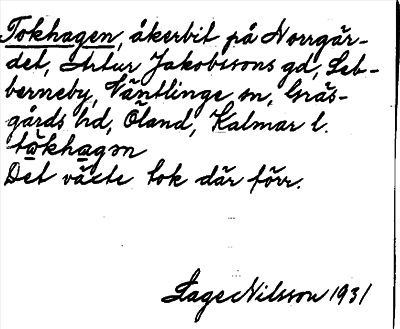 Tokhagen, åkerbit på Norrgår-
det, Artur Jakobssons gd, Seb-
berneby, Väntlinge sn, Gräs-
gårds hd, Öland, Kalmar l.
tωkhagən
Det växte tok där förr.
Sage Nilsson 1931